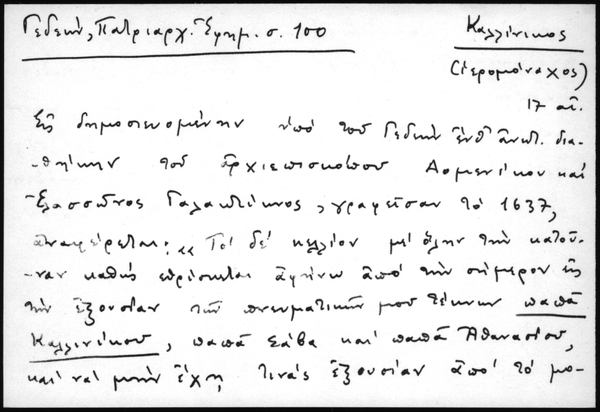 Γεδεών, Πατριαρχ. Ἐφημ. σ. 100
Καλλίνικος
(ἱερομόναχος)
17 αἰ.
Εἰς δημοσιευομένην ὑπό τοῦ Γεδεών ἔνθ' ἀνωτ. δια-
-θήκην τοῦ ἀρχιεπισκόπου Δομενίκου καί
Ἐλασσῶνος Γαλακτίωνος, γραφεῖσαν τό 1637,
ἀναφέρεται: «Τό δέ κελλίον μέ ὅλην τήν κατού-
ναν καθώς εὑρίσκεται ἀφήνω ἀπό τήν σήμερον εἰς
τήν ἐξουσίαν τῶν πνευματικῶν μου τέκνων παπᾶ
Καλλινίκου, παπᾶ Σάβα καί παπᾶ Ἀθανασίου,
καί νά μήν ἔχῃ τινάς ἐξουσίαν ἀπό τό μο-